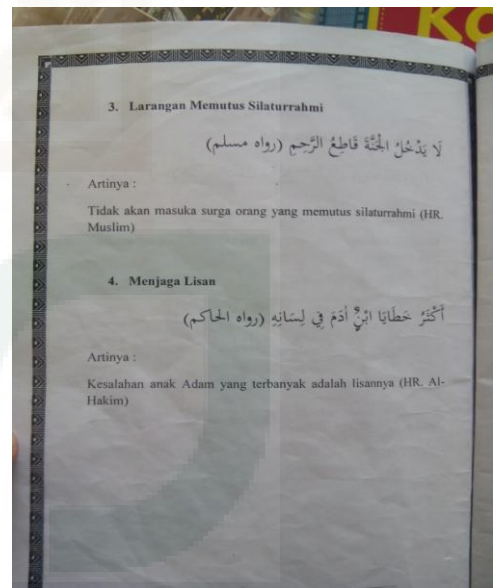 Ko
3. Larangan Memutus Silaturrahmi
لَا يَدْخُلُ الْجَنَّةَ قَاطِعُ الرَّحِمِ (رواه مسلم)
Artinya :
Tidak akan masuka surga orang yang memutus silaturrahmi (HR.
Muslim)
4. Menjaga Lisan
أَكْثَرُ خَطَايَا ابْنِ أَدَمَ فِي لِسَانِهِ (رواه الحاكم)
Artinya :
Kesalahan anak Adam yang terbanyak adalah lisannya (HR. Al-
Hakim)